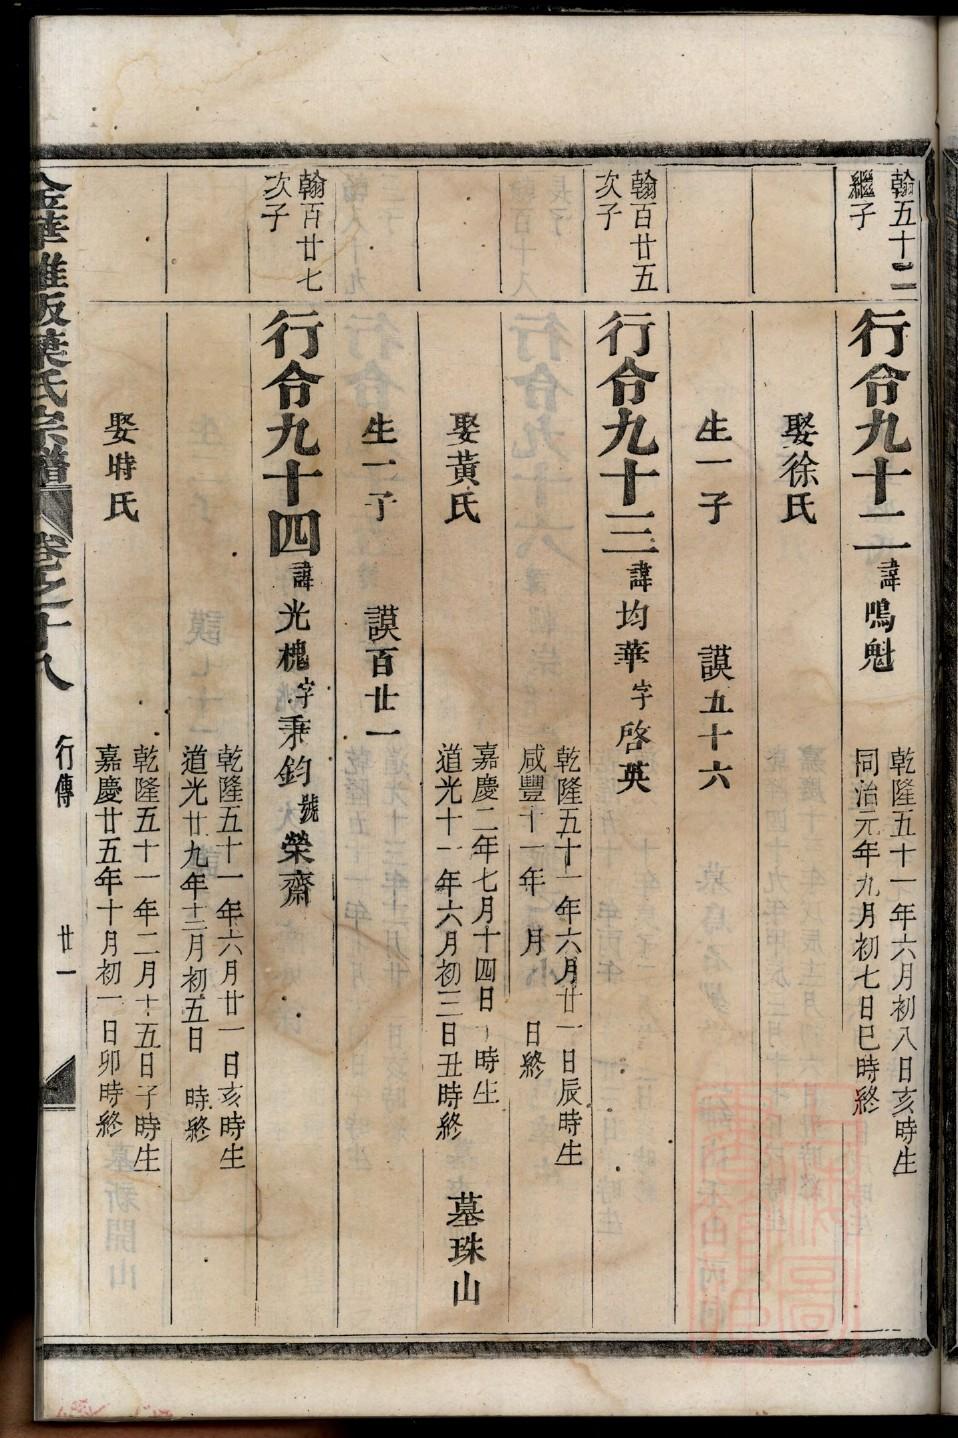 翰五十二
繼子
行令九十二 諱鳴魁
娶徐氏
乾隆五十一年六月初八日亥時生
同治元年九月初七日巳時終
生一子
謨五十六
翰百廿五
次子
行令九十三 諱均華 字啓英
乾隆五十一年六月廿一日辰時生
咸豐十一年 月 日終
娶黃氏
嘉慶二年七月十四日 時生
道光十一年六月初三日丑時終
墓珠山
生一子
謨百廿一
翰百廿七
次子
行令九十四 諱光槐 字秉鈞 號榮齋
乾隆五十一年六月廿一日亥時生
道光廿九年十二月初五日 時終
娶時氏
乾隆五十一年二月十五日子時生
嘉慶廿五年十月初一日卯時終
葉氏宗譜 卷之十八 行傳 廿一